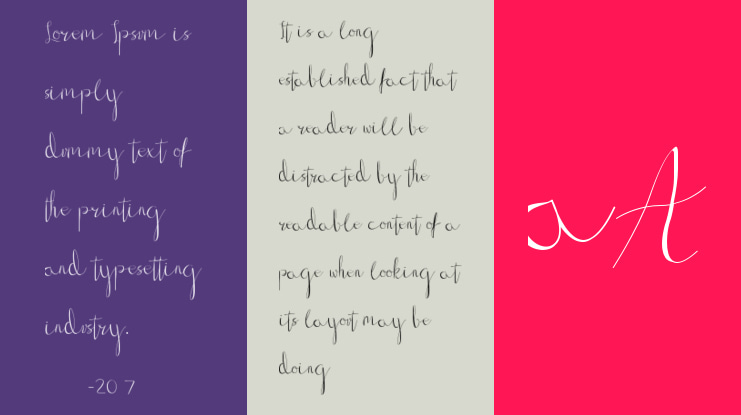 Lorem Ipsum is
simply
dummy text of
the printing
and typesetting
industry.
-20 7
It is a long
established fact that
a reader will be
distracted by the
readable content of a
page when looking at
its layout may be
doing
aA